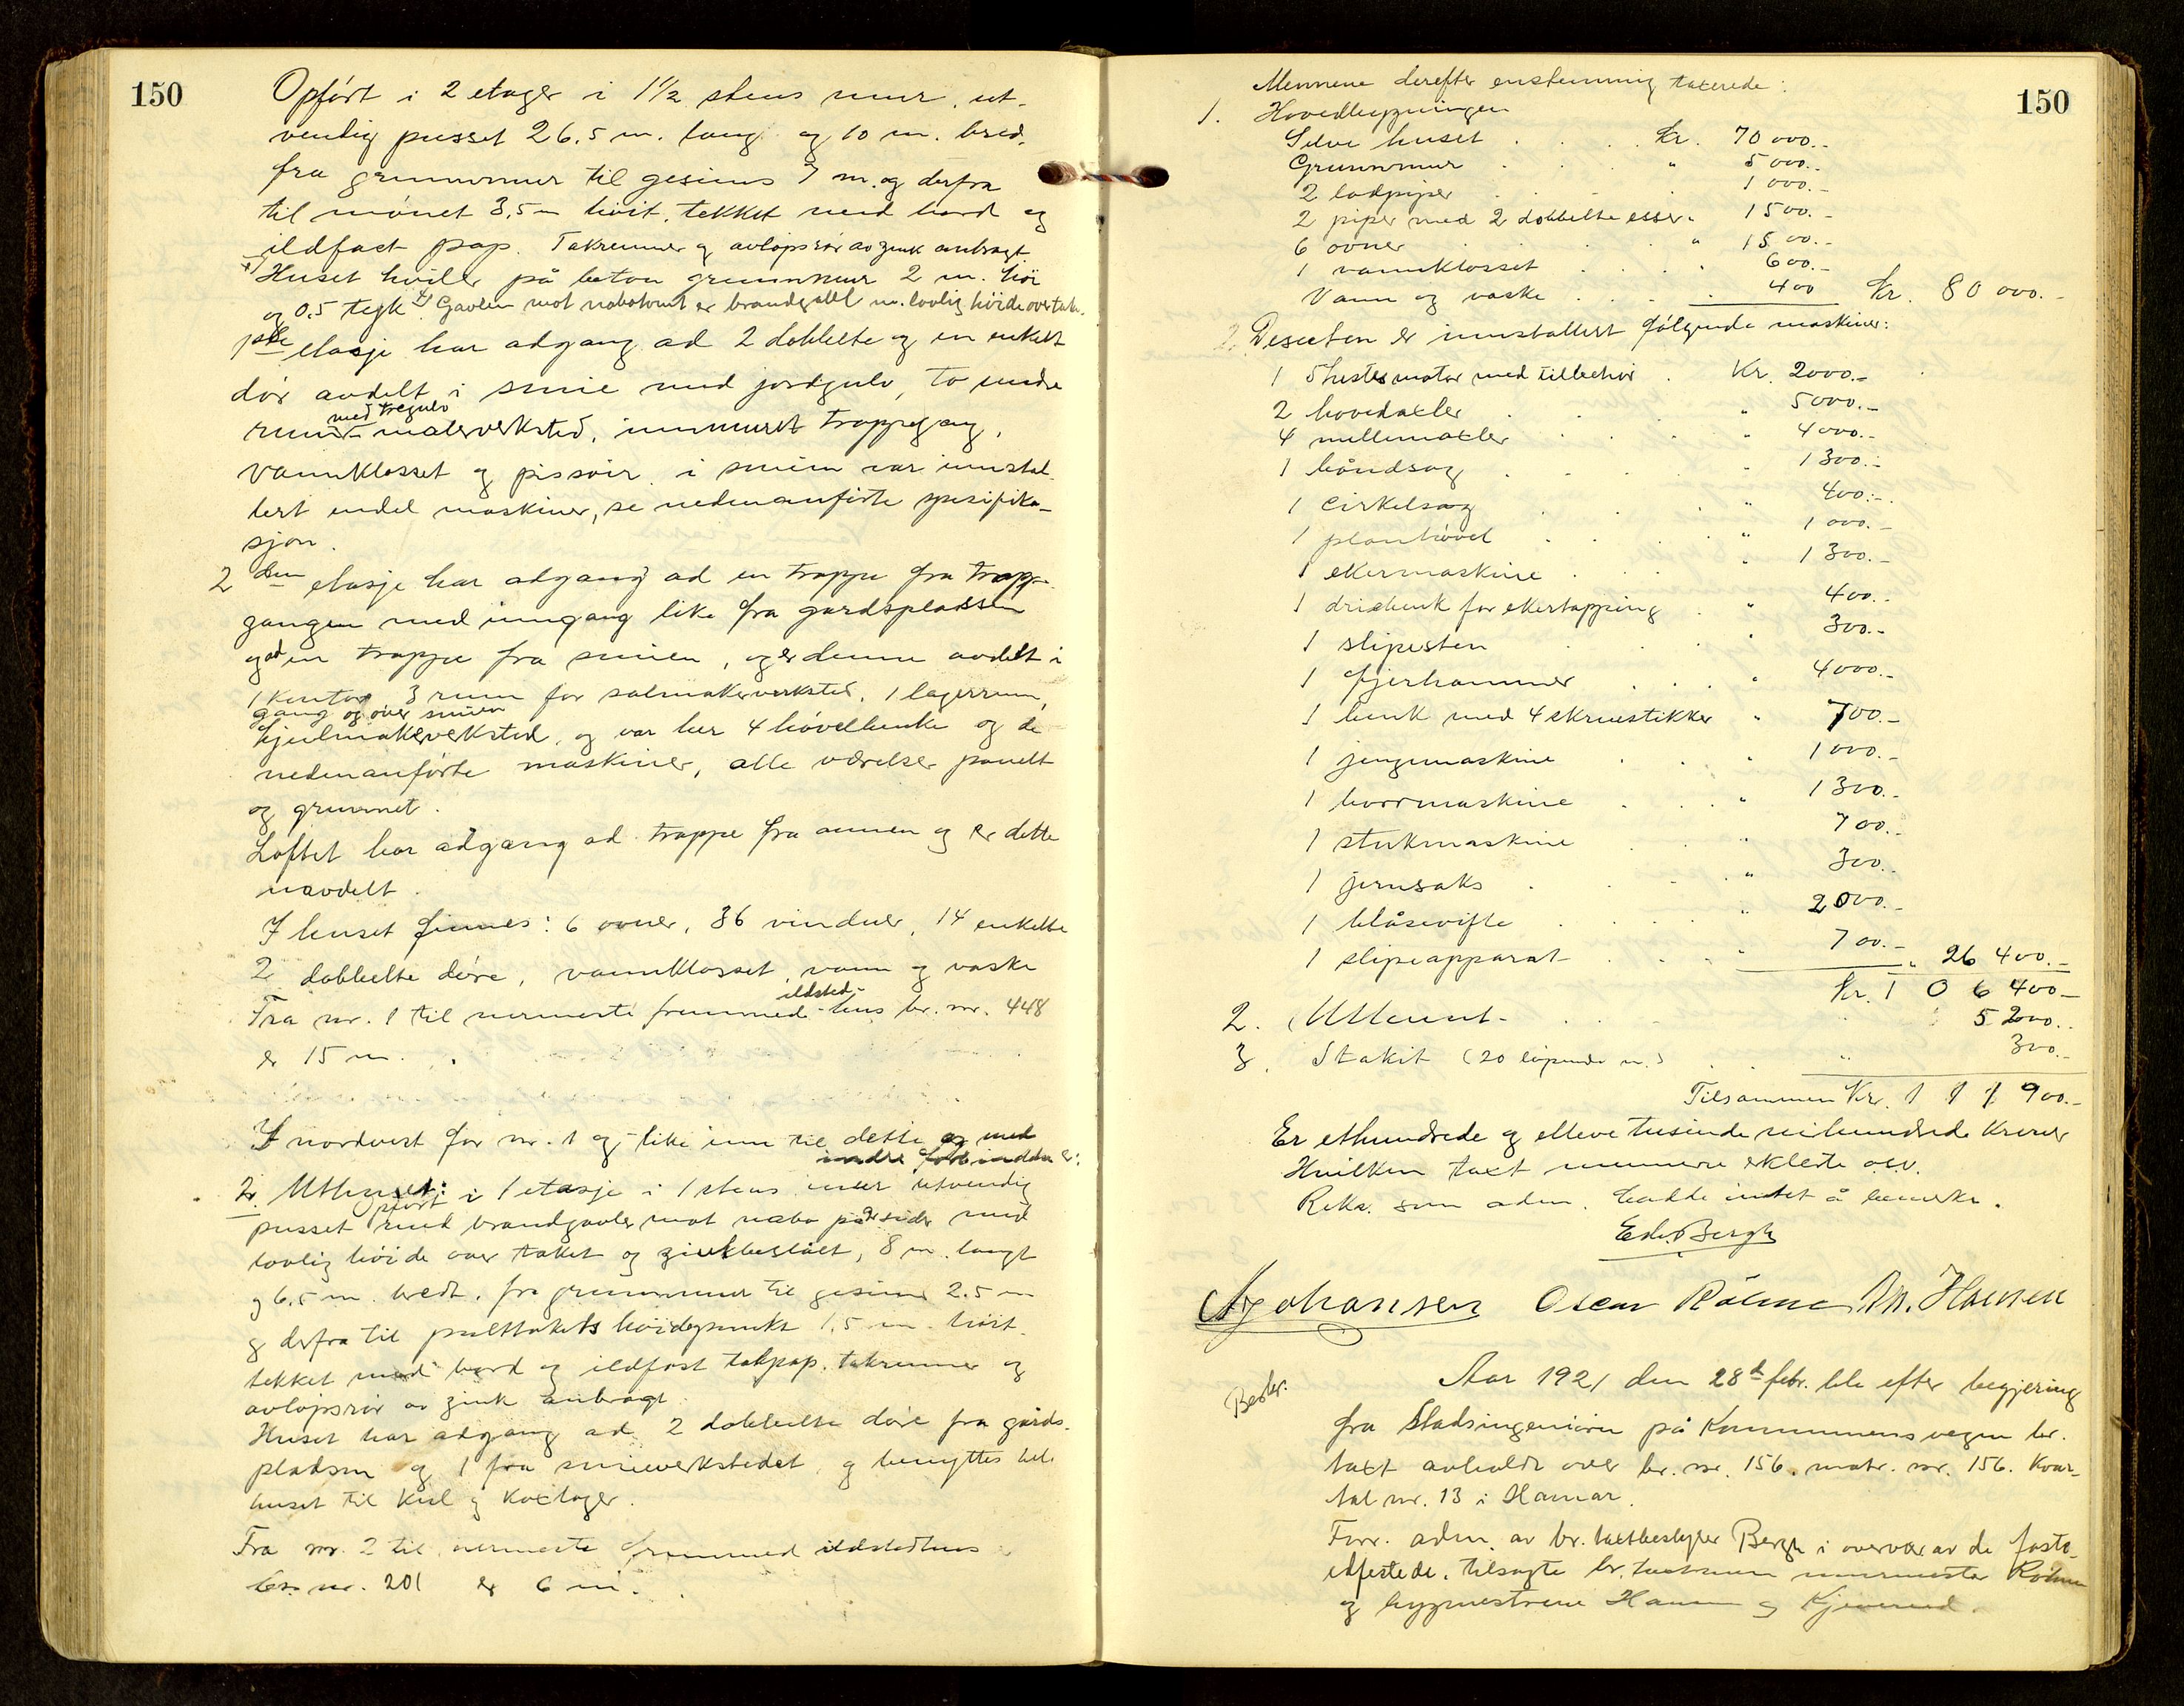 150
Opført i 2 etager i 1½ stens mur, ut-
vendig pusset 26.5 m. lang og 10 m. bred,
fra grunnmur til gesims 7 m. og derfra
til mønet 3,5 m høit, tekket med bord og
ildfast pap. Takrenner og avløpsrør av zink anbragt
Huset hviler på beton grunnmur 2 m. høi
og 0.5 tyk. Gavlen mot nabotomt er brandgavl m. lovlig høide over tak.
1ste etasje har adgang ad 2 dobbelte og en enkelt
dør avdelt i smie med jordgulv, to andre
med tregulv
rum malerverksted, innmuret trappegang,
vannklosset og pissoir, i smien var instal-
lert endel maskiner, se nedenanførte spesifika-
sjon.
2den etasje har adgang ad en trappe fra trap-
gangen med inngang like fra gardspladsen
og ad en trappe fra smien, og er denne avdelt i
1 kontor, 3 rum for salmakerverksted, 1 lagerrum,
gang og over smien
hjulmakerverksted, og var her 4 høvelbenke og de
nedenanførte maskiner, alle værelser panelt
og grunnet.
Loftet har adgang ad trappe fra annen og er dette
uavdelt.
I huset finnes: 6 ovner, 36 vinduer, 14 enkelte
2 dobbelte døre, vannklosset, vann og vaske
ildsted-
Fra nr. 1 til nermeste fremmed hus br. nr. 448
er 15 m.
I nordvest for nr. 1 og like inn til dette og med
indre forbindelse er:
2. Uthuset:
opført i 1 etasje i 1 stens mur utvendig
pusset med brandgavler mot nabo på 2 sider med
lovlig høide over taket og zinkbeslået, 8 m. langt
og 6.5 m. bredt, fra grunnmur til gesims 2.5 m
og derfra til pulttakets høidepunkt 1,5 m. høit.
tekket med bord og ildfast takpap. takrenner og
avløpsrør av zink anbragt.
Huset har adgang ad 2 dobbelte døre fra gårds-
pladsen og 1 fra smieverkstedet, og benyttes hele
huset til kul og kokslager.
Fra nr. 2 til nermeste fremmed ildstedhus
br. nr. 201 er 6 m.
150
Mennene derefter enstemmig taxerede:
1. Hovedbygningen
Selve huset . . . kr. 70 000.-
Grunnmur . . . " 5 000.-
2 lodpiper . . . 1 000.-
2 piper med 2 dobbelte esser " 1500.-
6 ovner . . . " 1500.-
1 vannklosset . . . 600.-
Vann og vaske . . . 400 kr. 80 000.-
Desuten er innstallert følgende maskiner:
1 5 hestes motor med tilbehør . Kr. 2000.-
2 hovedaxler . . . " 5000.-
4 mellemaxler . . . " 4000.-
1 båndsag . . . " 1300.-
1 cirkelsag . . . " 400.-
1 planhøvel . . . " 1000.-
1 ekermaskine . . . 1300.-
1 driebenk for ekertapping . " 400.-
1 slipesten . . . " 300.-
1 fjerhammer . . . " 4000.-
1 benk med 4 skruestikker " 700.-
1 jengemaskine . . . " 1000.-
1 borrmaskine . . . " 1300.-
1 stukmaskine . . . " 700.-
1 jernsaks . . . " 300.-
1 blåsevifte . . . " 2000.-
1 slipeapparat . . . " 700.- " 26 400.-
Kr. 106 400.-
2. Uthuset . . . " 5 200.-
3. Stakit (20 løpende m.) . . " 300.-
Tilsammen Kr. 111 900.-
Er ethundrede og elleve tusinde nihundrede kroner
Hvilken taxt mennene erklerte osv.
Rekv. som adm. hadde intet å bemerke.
Edv. Bergh
A Johansen Oscar Røhme M. Hansen
Besler. Aar 1921 den 28d febr. ble efter begjering
fra Stadsingeniøren på Kommunens vegne br.
taxt avholdt over br. nr. 156. matr. nr. 156. Kvar-
tal nr. 13 i Hamar.
Forr. adm. av br. taxtbestyrer Bergh i overvær av de faste
edfestede, tilsagte br. taxtmenn murmester Røhme
og bygmestrene Hansen og Kjeverud.